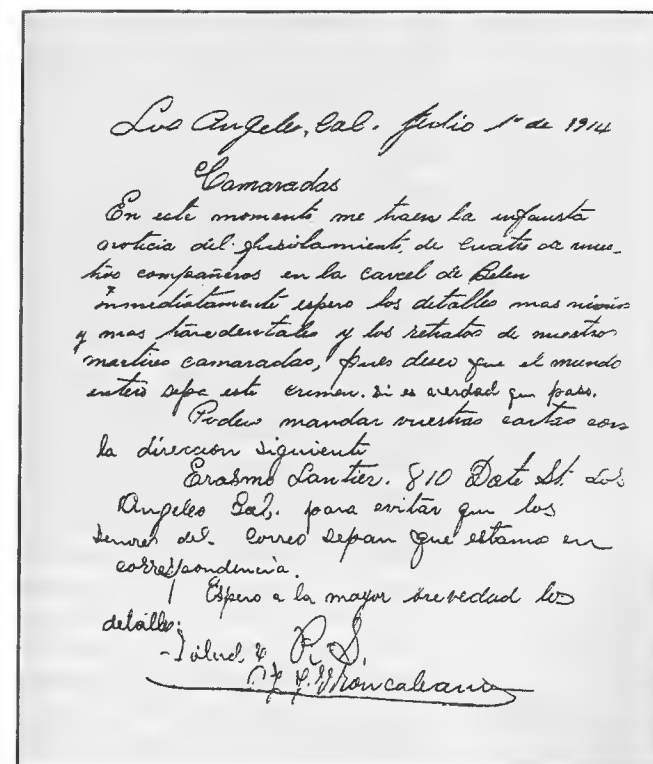 Los Angeles, Cal. Julio 1º de 1914
Camaradas
En este momento me traen la infausta
noticia del fusilamiento, de cuatro de nues-
tros compañeros en la carcel de Belen
inmediatamente espero los detalles mas
y mas y los retratos de nuestros
martires camaradas, pues deseo que el mundo
entero sepa este crimen. Si es verdad que paso.
Podeis mandar vuestras cartas con
la direccion siguiente
Erasmo Lantier. 810 Date St. Los
Angeles Cal. para evitar que los
Senores del Correo sepan que estamo en
correspondencia.
Espero a la mayor brevedad los
detalles.
Salud y R. S.
J. F. Moncaleano